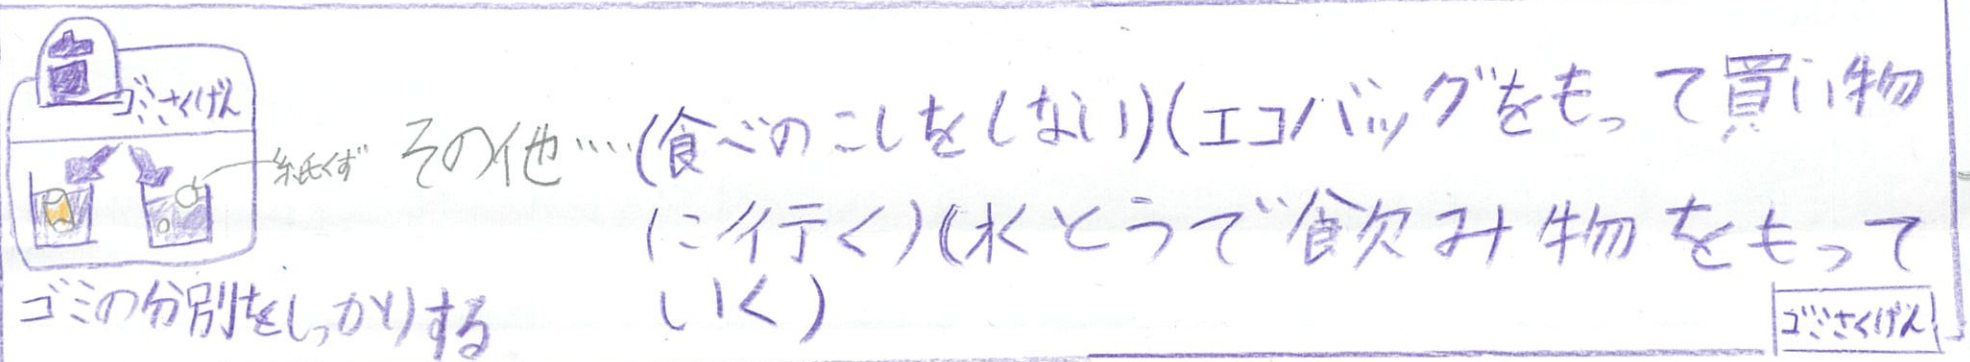 ゴミさくげん
紙くず
ゴミの分別をしっかりする
その他‥‥(食べのこしをしない)(エコバッグをもって買い物
に行く)(水とうで飲み物をもって
いく)
ゴミさくげん